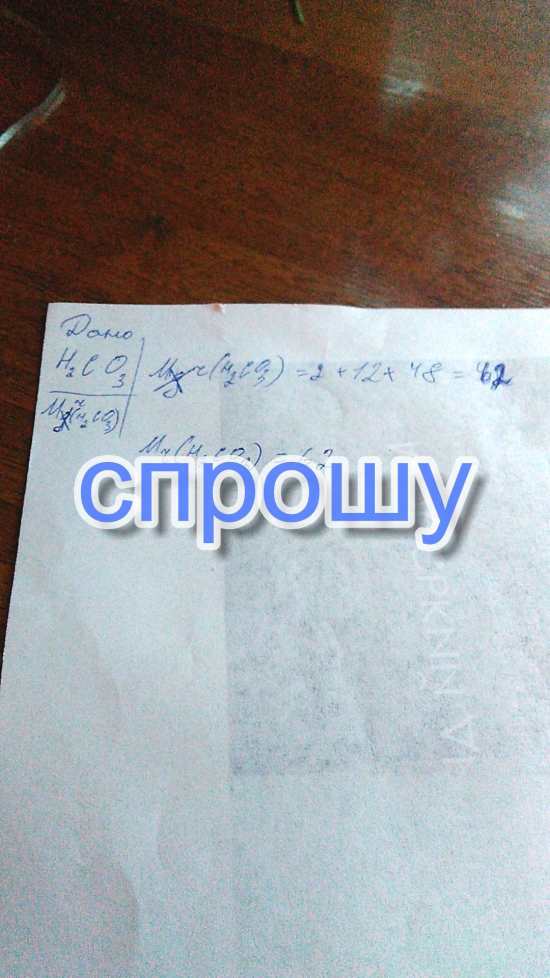 Дано
H₂CO₃
Mr(H₂CO₃)
Mr(H₂CO₃) = 2 + 12 + 48 = 62
Mr(H₂CO₃) = 62
спрошу